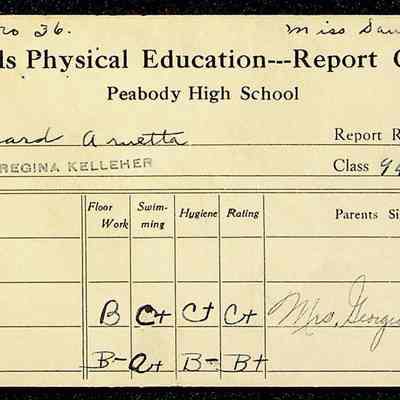 36. Miss
ls Physical Education---Report C
Peabody High School
ard Arnetta Report R
REGINA KELLEHER Class 9
Floor Work Swim-ming Hygiene Rating Parents Si
B C+ C+ C+ Mrs. Georgi
B- a+ B- B+